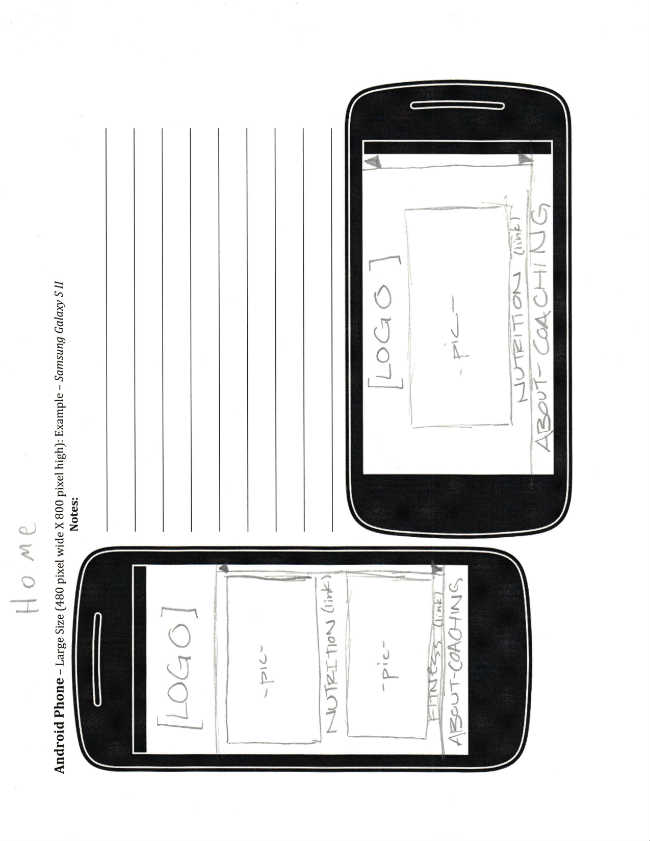 Home
Android Phone – Large Size (480 pixel wide X 800 pixel high): Example – Samsung Galaxy S II
Notes:
[LOGO]
-pic-
NUTRITION (link)
-pic-
FITNESS (link)
ABOUT-COACHING
[LOGO]
-pic-
NUTRITION (link)
ABOUT-COACHING